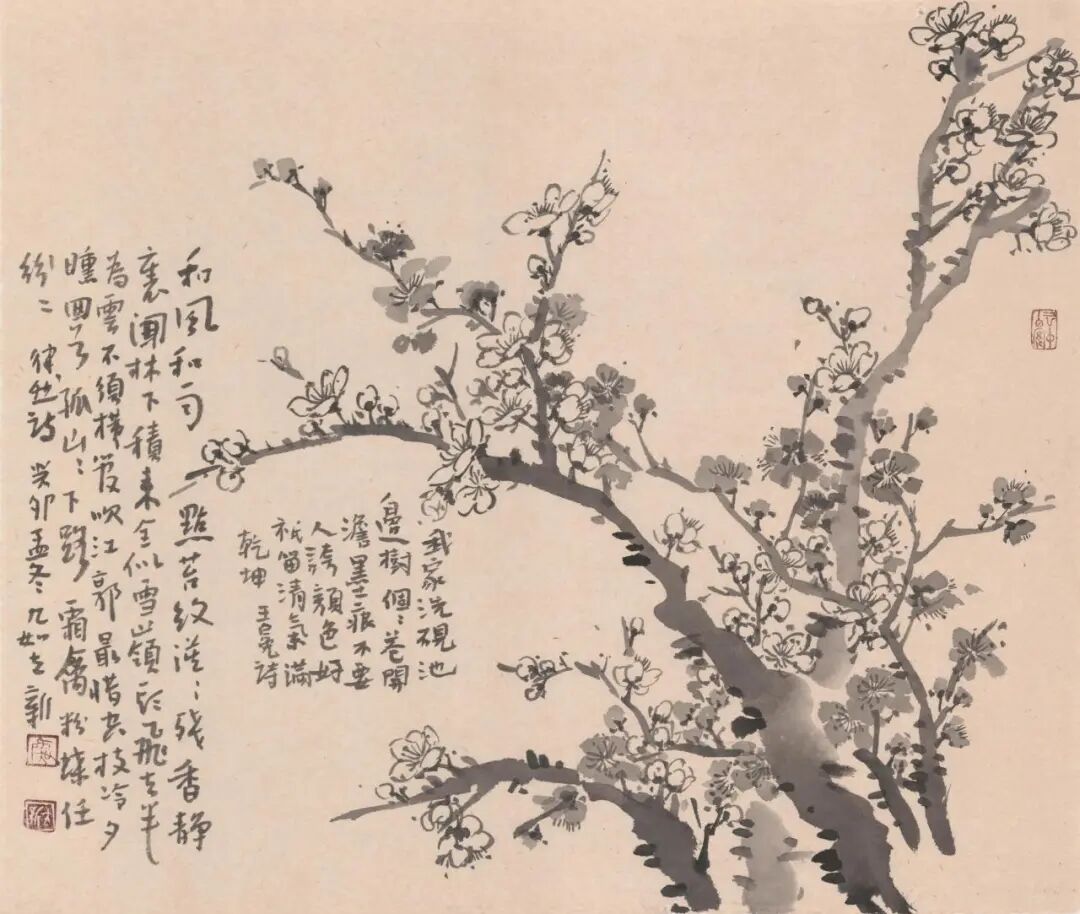 和風和雨點苔紋漠〻殘香静
裏聞林下積來全似雪嶺頭飛去半
為雲不須横管吹江郭最惜空枝冷夕
曛回首孤山〻下路霜禽粉蝶任
紛〻 律然詩 癸卯孟冬九如立新
我家洗硯池
邊樹個〻花開
澹墨痕不要
人誇顏色好
祇留清氣滿
乾坤 王冕詩